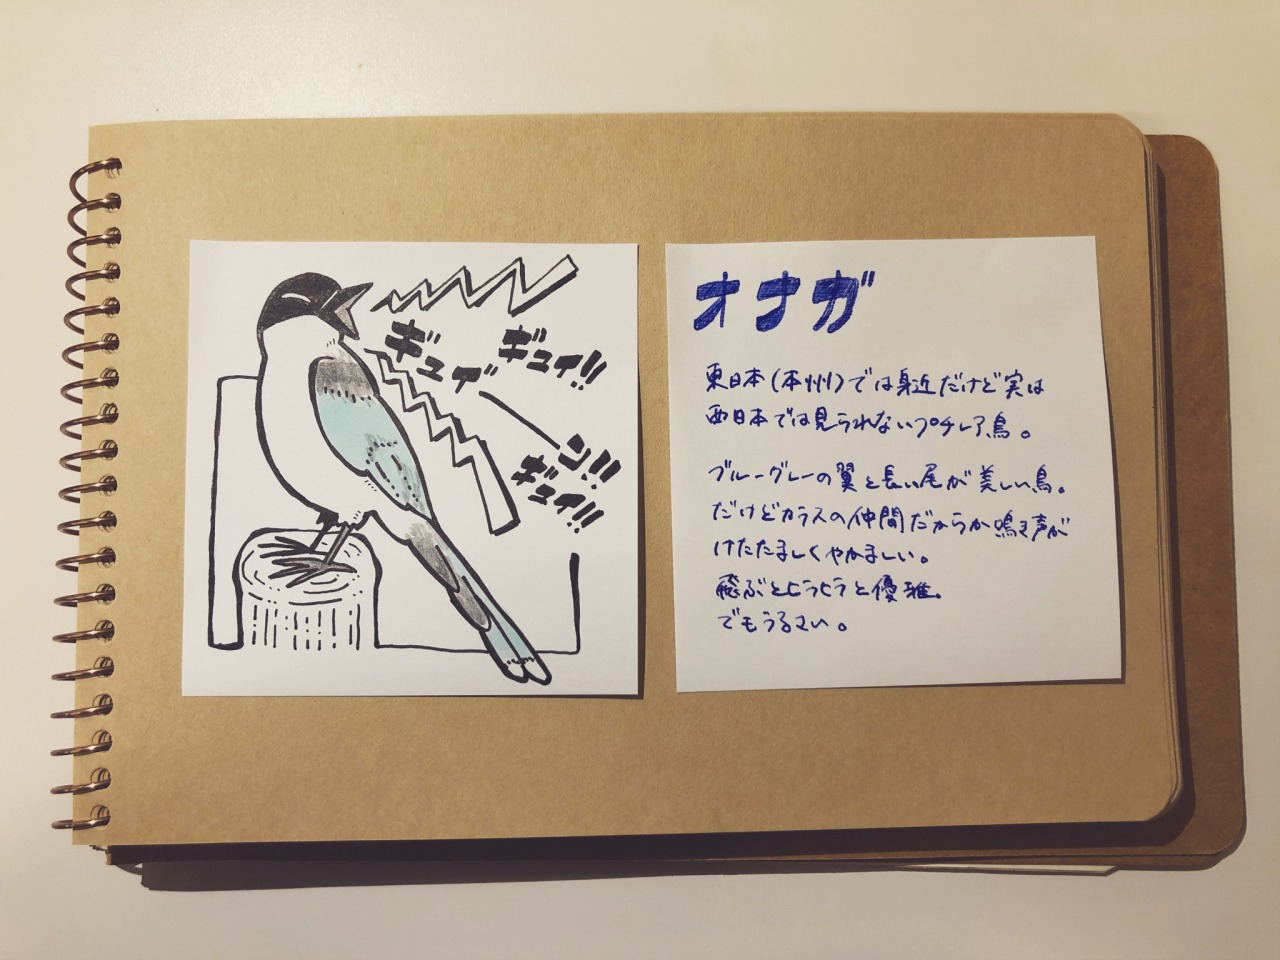 ギュイ
ギュイ!!
ーン!!
ギュイ!!
オナガ
東日本(本州)では身近だけど実は
西日本では見られないプチレア鳥。
ブルーグレーの翼と長い尾が美しい鳥。
だけどカラスの仲間だからか鳴き声が
けたたましくやかましい。
飛ぶとヒラヒラと優雅。
でもうるさい。